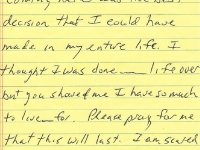 decision that I could have
made in my entire life. I
thought I was done — life over
but you showed me I have so much
to live — for. Please pray for me
that this will last. I am scared